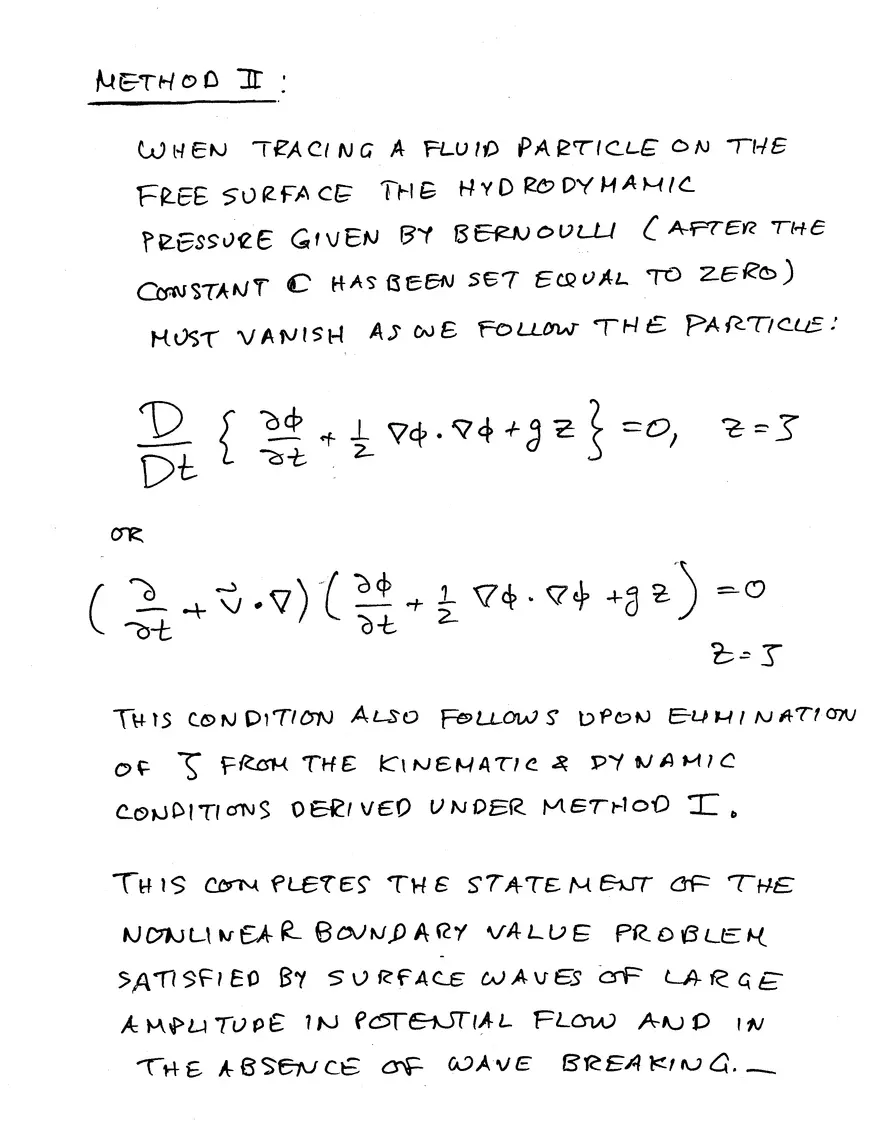 METHOD II :
WHEN TRACING A FLUID PARTICLE ON THE
FREE SURFACE THE HYDRODYMAMIC
PRESSURE GIVEN BY BERNOULLI (AFTER THE
CONSTANT C HAS BEEN SET EQUAL TO ZERO)
MUST VANISH AS WE FOLLOW THE PARTICLE:
D/Dt { ∂ϕ/∂t + 1/2 ∇ϕ·∇ϕ + gz } = 0, z = ζ
OR
( ∂/∂t + v⃗·∇ ) ( ∂ϕ/∂t + 1/2 ∇ϕ·∇ϕ + gz ) = 0
z = ζ
THIS CONDITION ALSO FOLLOWS UPON ELIMINATION
OF ζ FROM THE KINEMATIC & DYNAMIC
CONDITIONS DERIVED UNDER METHOD I.
THIS COMPLETES THE STATEMENT OF THE
NONLINEAR BOUNDARY VALUE PROBLEM
SATISFIED BY SURFACE WAVES OF LARGE
AMPLITUDE IN POTENTIAL FLOW AND IN
THE ABSENCE OF WAVE BREAKING. _